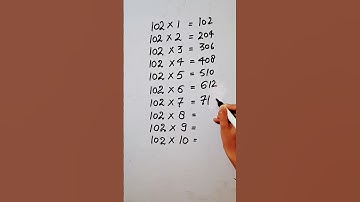 102 × 1 = 102
102 × 2 = 204
102 × 3 = 306
102 × 4 = 408
102 × 5 = 510
102 × 6 = 612
102 × 7 = 71
102 × 8 =
102 × 9 =
102 × 10 =